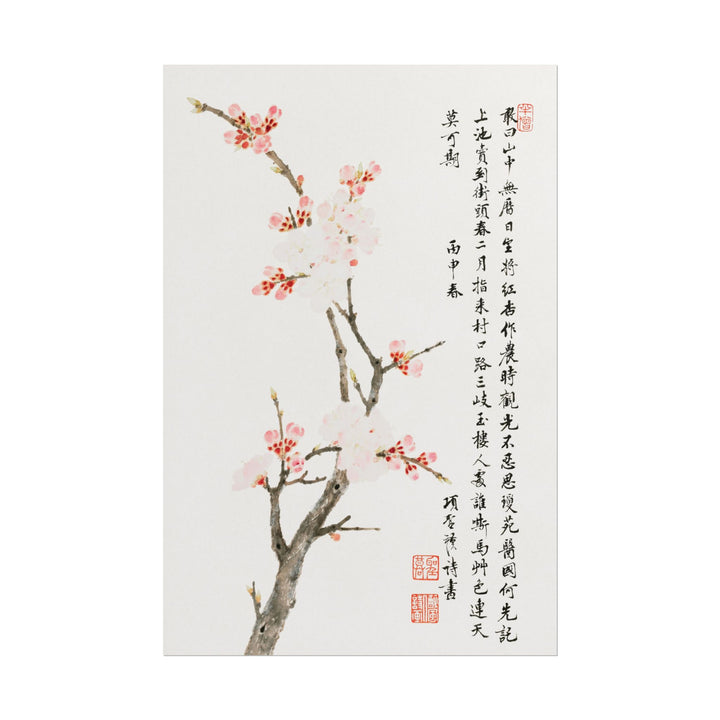 敢曰山中無曆日坐將紅杏作農時觀光不忍思瓊苑醫國何先託
上池賣到街頭春二月指來村口路三岐玉樓人誰嘶馬艸色連天
莫可期 丙申春 項聖謨詩書